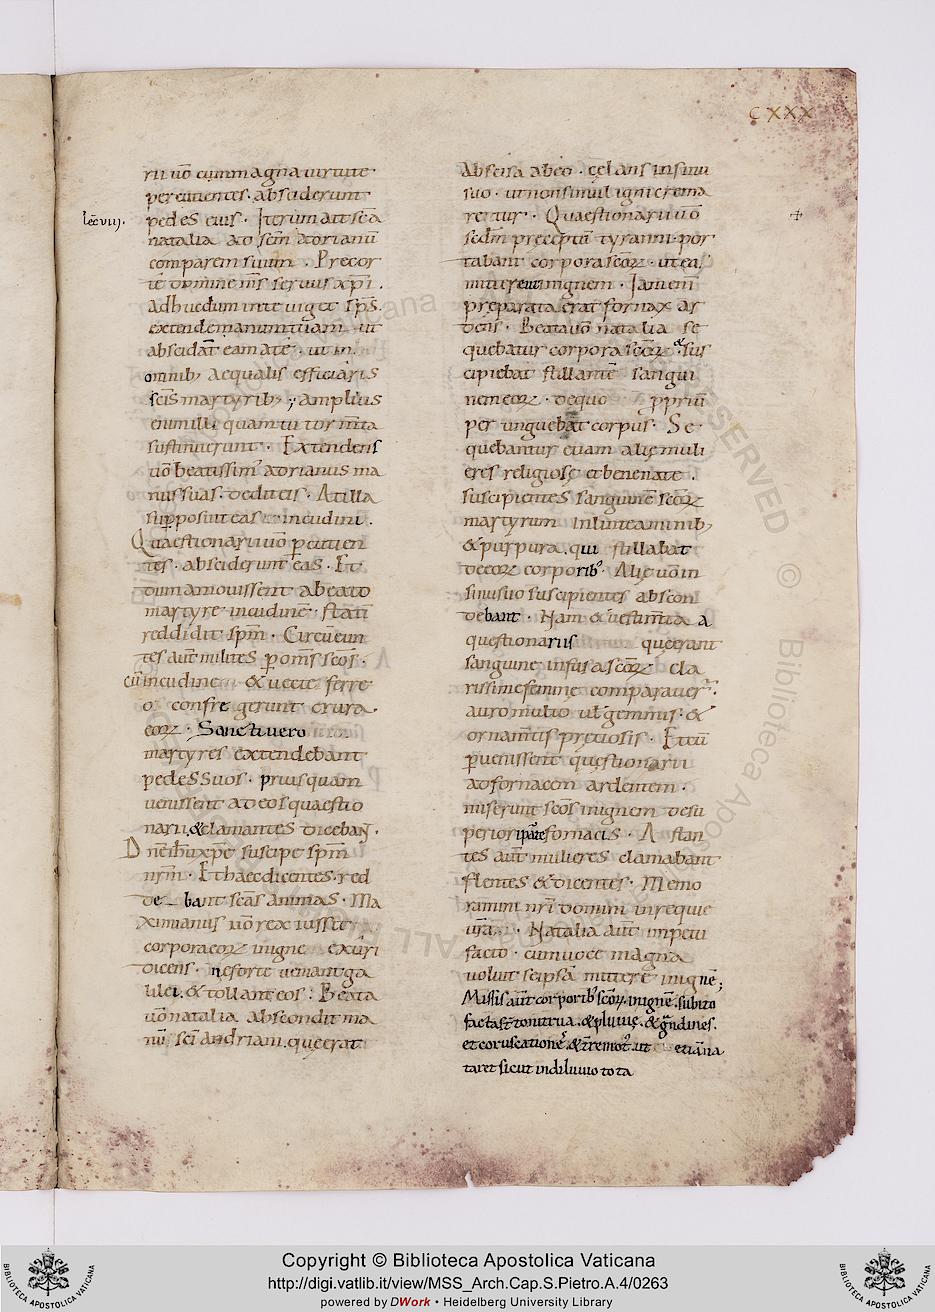 CXXX
rii uo cum magna uirtute ·
percutientes · absciderunt
lec viii.
pedes eius · Iterum ait scā
natalia ad scm adrianū
comparem suum · Precor
te domine mis seruus xpi .
Adhuc dum in te uiget sps.
extende manum tuam · ut
abscidat eam a te · ut in
omnib; aequalis efficiaris
scis martyrib; ; amplius
enim illi quam tu tormta
sustinuerunt · Extendens
uo beatissim' adrianus ma
nus suas · dedit eis · At illa
supposuit eas incudini .
Quaestionarii uo pcutien
tes · absciderunt eas · Et
dum amouissent a beato
martyre incudine · stati
reddidit spm · Circueun
tes aut milites p oms scos ·
cū incudine & uecte ferre
o confregerunt crura
eorꝝ · Sancti uero
martyres extendebant
pedes suos · priusquam
uenissent ad eos quaestio
narii, & clamantes dicebant
Dne ihu xpe suscipe spm
nrm · Et haec dicentes · red
debant scas animas · Ma
ximianus uo rex iussit
corpora eorꝝ igne exuri
dicens · ne forte ueniant ga
lilei, & tollant eos : Beata
uo natalia abscondit ma
nū sci andriani . quę erat
Abscisa ab eo · cęlans in sinu
suo · ut non simul igni crema
retur · Quaestionarii uo
scdm pręceptū tyranni · por
tabant corpora scorꝝ · ut ea
mitterent in ignem · Iam eni
pręparata erat fornax ar
dens · Beata uo natalia se
quebatur corpora scorꝝ & sus
cipiebat stillantē sangui
nem eorꝝ · de quo ppriū
per unguebat corpus · Se
quebantur etiam alię muli
eres religiosę et bene natę ·
suscipientes sanguinē scorꝝ
martyrum in linteaminib;
& purpura . qui stillabat
de eorꝝ corporib' · Alię uo in
sinu suo suscipientes abscon
debant · Nam & uestimta a
questionariis quęerant
sanguine infusa scorꝝ cla
rissimę feminę comparauer
auro multo uł gemmis · &
ornamtis prętiosis · Et cū
puenissent quęstionarii
ad fornacem ardentem ·
miserunt scos in ignem desu
periori parte fornacis · Astan
tes aut mulieres clamabant
flentes & dicentes · Memo
ramini nri domini in requie
ura · Natalia aut impetu
facto · cum uoce magna
uoluit se ipsā mittere in ignē ;
Missis aut corporib' scorꝝ in igne . subito
facta st tonitrua . & pluuię . & grandines .
et coruscationes . & tremot' . ut etiā na
taret sicut in diluuio tota
Copyright © Biblioteca Apostolica Vaticana
http://digi.vatlib.it/view/MSS_Arch.Cap.S.Pietro.A.4/0263
powered by DWork • Heidelberg University Library